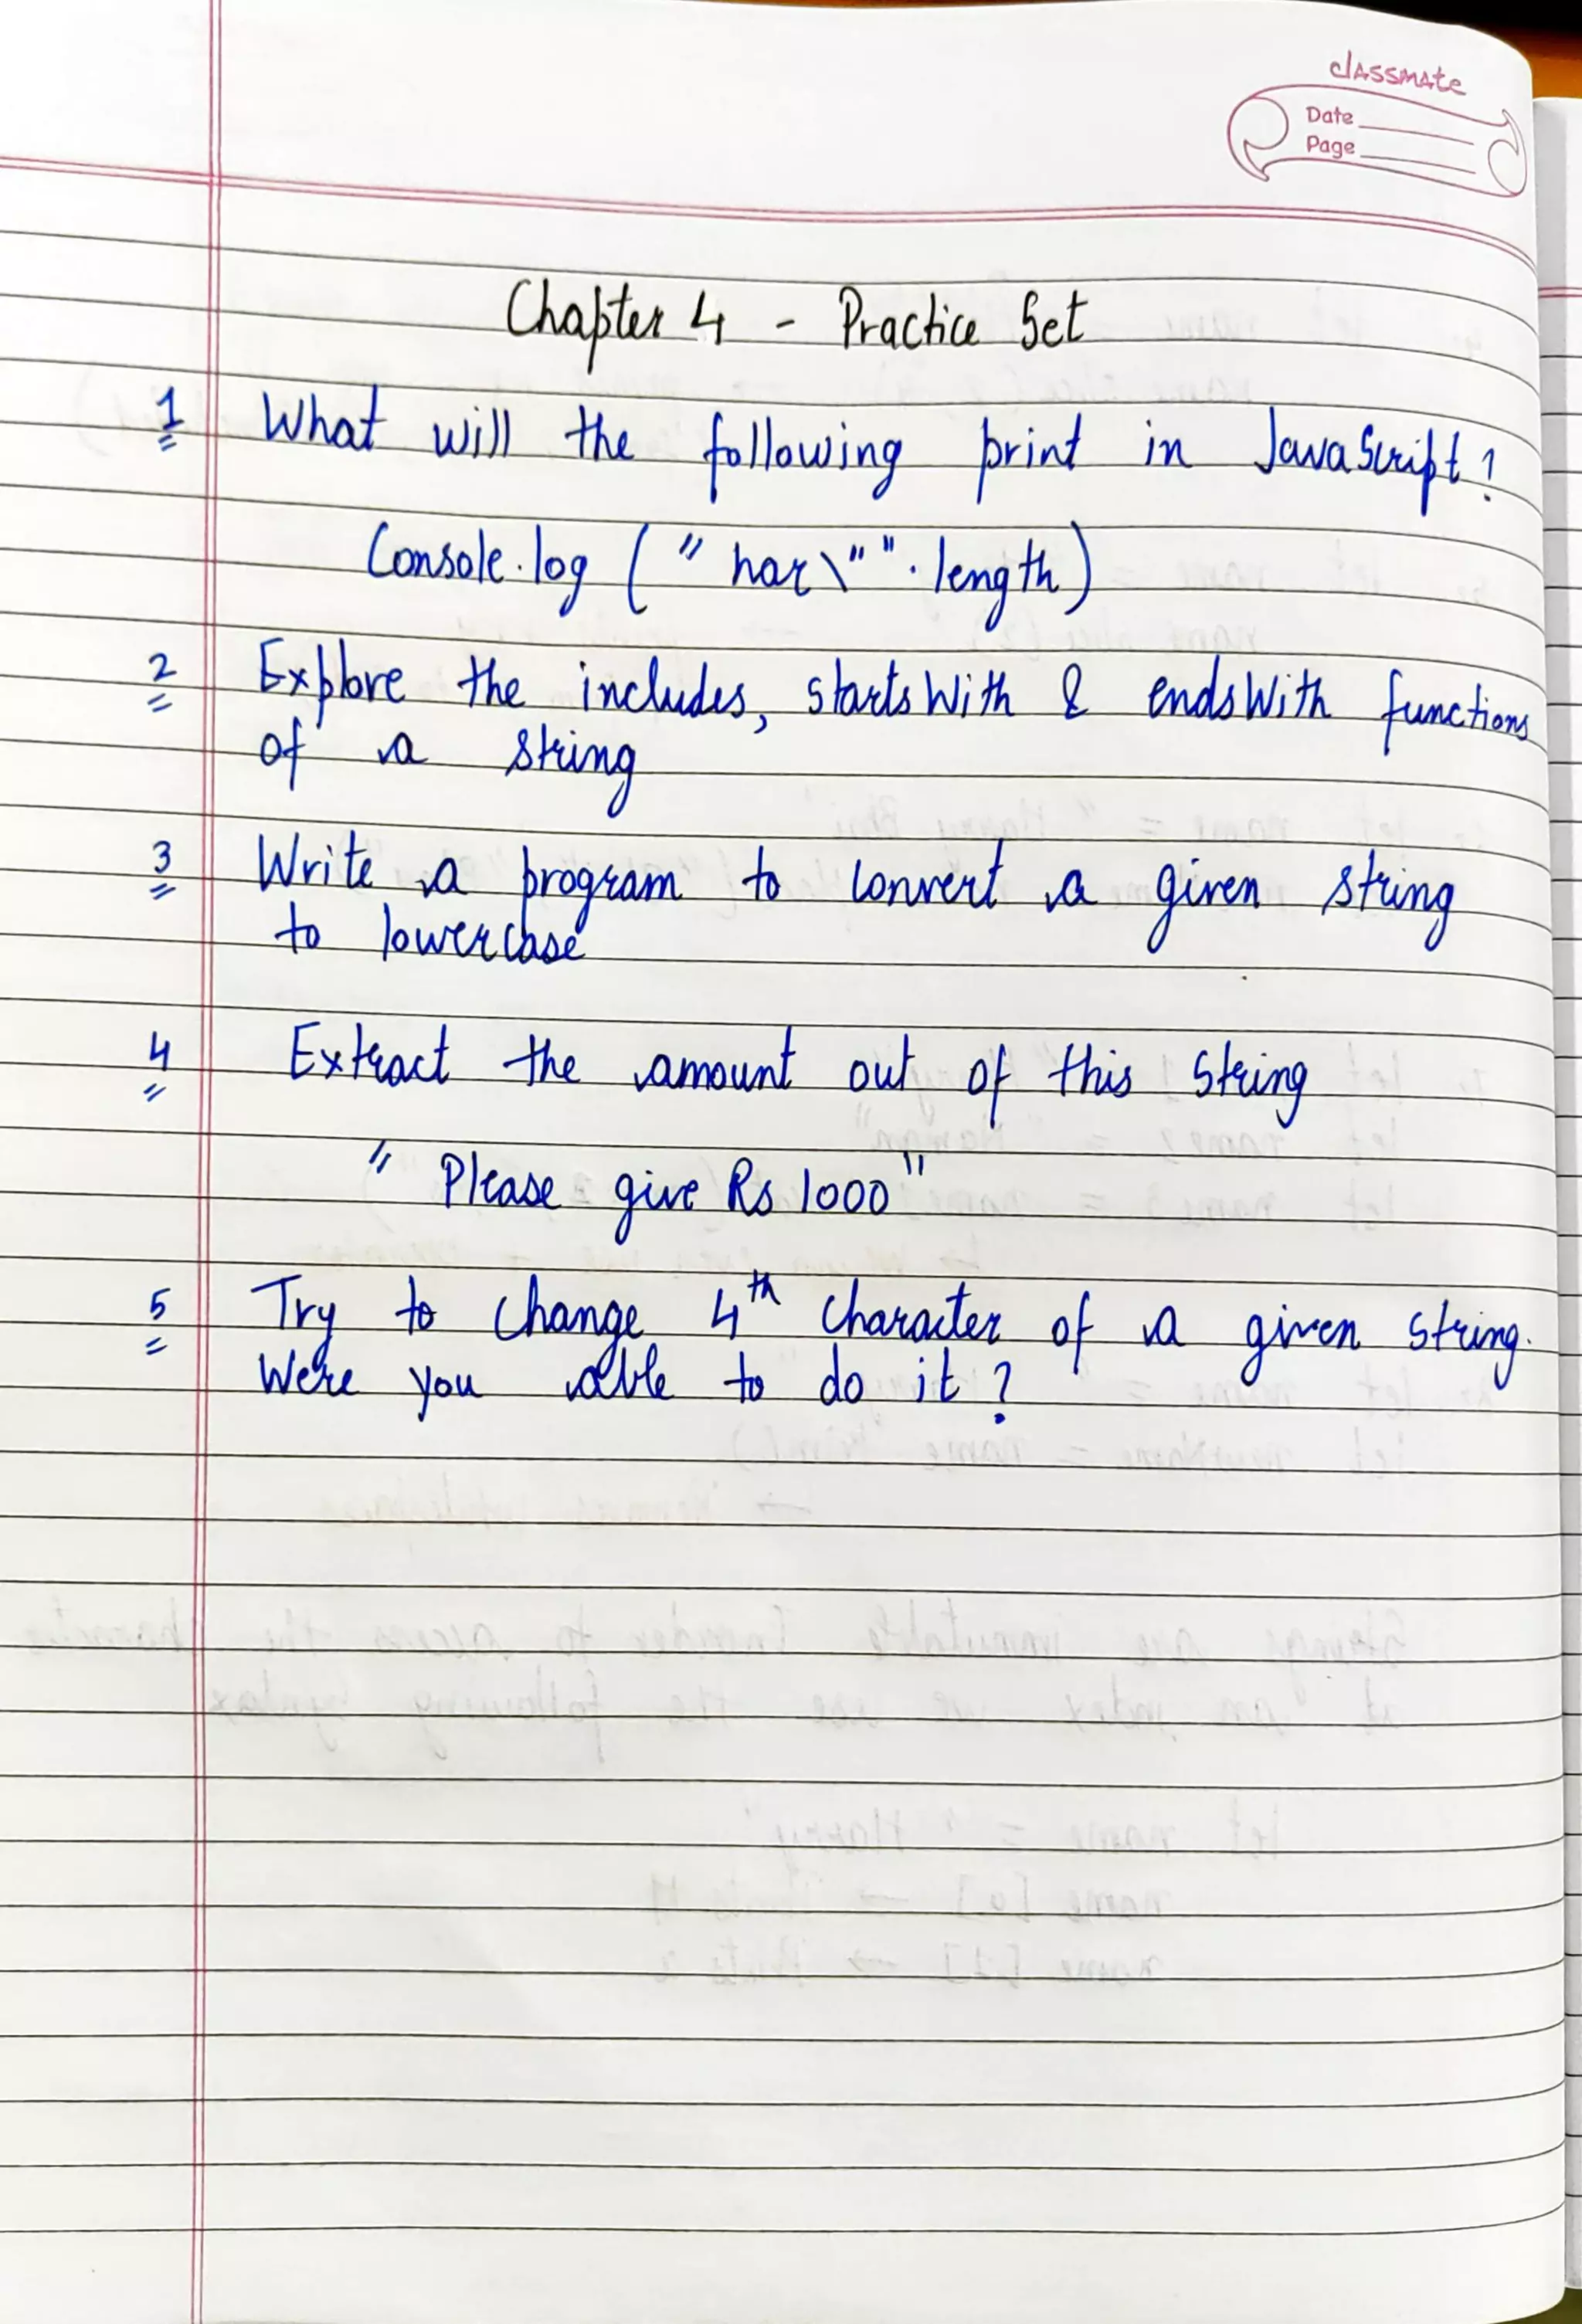 classmate
Date
Page
Chapter 4 - Practice Set
1 What will the following print in JavaScript?
Console.log ("har\"".length)
2 Explore the includes, startsWith & endsWith functions
of a string
3 Write a program to convert a given string
to lowercase
4 Extract the amount out of this string
"Please give Rs 1000"
5 Try to change 4th character of a given string.
Were you able to do it?